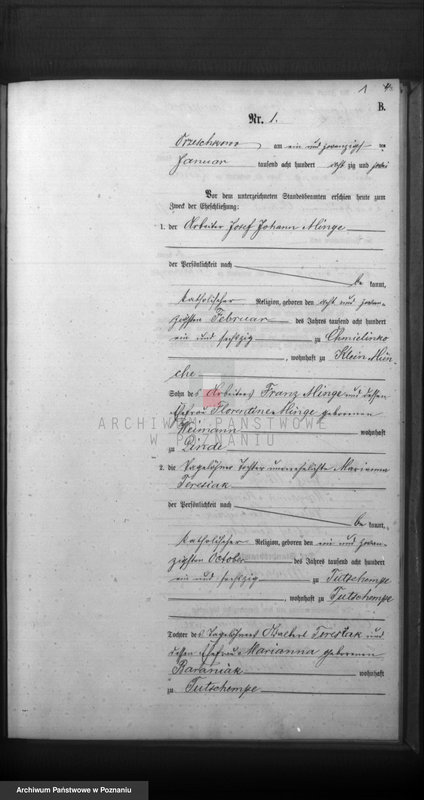 1
B.
Nr. 1.
Orzeschkowo am ein und zwanzigsten
Januar tausend acht hundert acht zig und zwei
Vor dem unterzeichneten Standesbeamten erschien heute zum
Zweck der Eheschließung:
1. der Arbeiter Josef Johann Minge
der Persönlichkeit nach
be kannt,
katholischer Religion, geboren den acht und zwan-
zigsten Februar des Jahres tausend acht hundert
ein und sechszig zu Chmielinko
, wohnhaft zu Klein Mün-
che
Sohn des Arbeiters Franz Minge und dessen
Ehefrau Florentine Minge geborenen
Weimann wohnhaft
zu Linde
ARCHIWUM PAŃSTWOWE
W POZNANIU
2. die Tagelöhner Tochter unverehelichte Marianna
Teresiak
der Persönlichkeit nach
be kannt,
katholischer Religion, geboren den ein und zwan-
zigsten October des Jahres tausend acht hundert
ein und sechszig zu Tutschempe
, wohnhaft zu Tutschempe
Tochter des Tagelöhners Teresiak und
dessen Ehefrau Marianna geborenen
Baraniak wohnhaft
zu Tutschempe
Archiwum Państwowe w Poznaniu